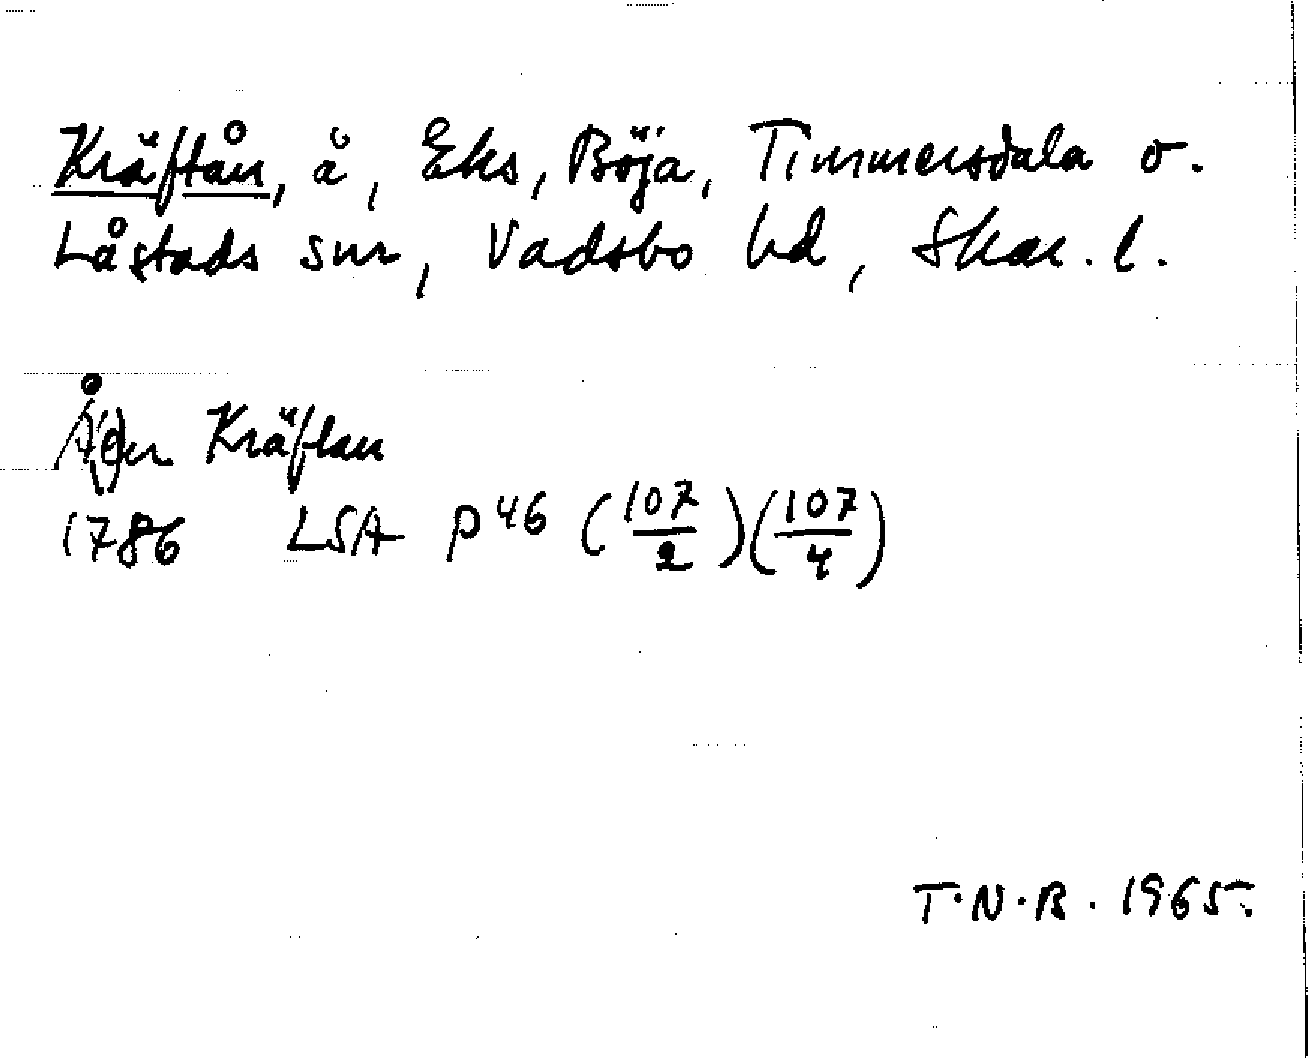 Kräftån, å, Eks, Böja, Timmersdala o.
Låstads snr, Vadsbo hd, Skar. l.
Å(e)n Kräftan
1786 LSA P 46 (107/2)(107/4)
T.N.B. 1965.